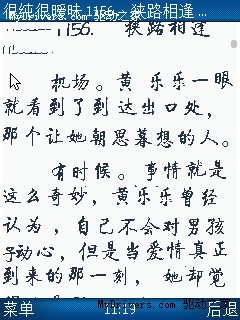 很纯很暧昧 1156. - 狭路相逢 ...
MyDrivers.com 驱动之家
1156. 狭路相逢
机场。黄乐乐一眼
就看到了到达出口处，
那个让她朝思暮想的人。
有时候。事情就是
这么奇妙，黄乐乐曾经
认为，自己不会对男孩
子动心，但是当爱情真正
到来的那一刻，她却觉
MyDrivers.com 驱动之家
菜单 11:19 后退